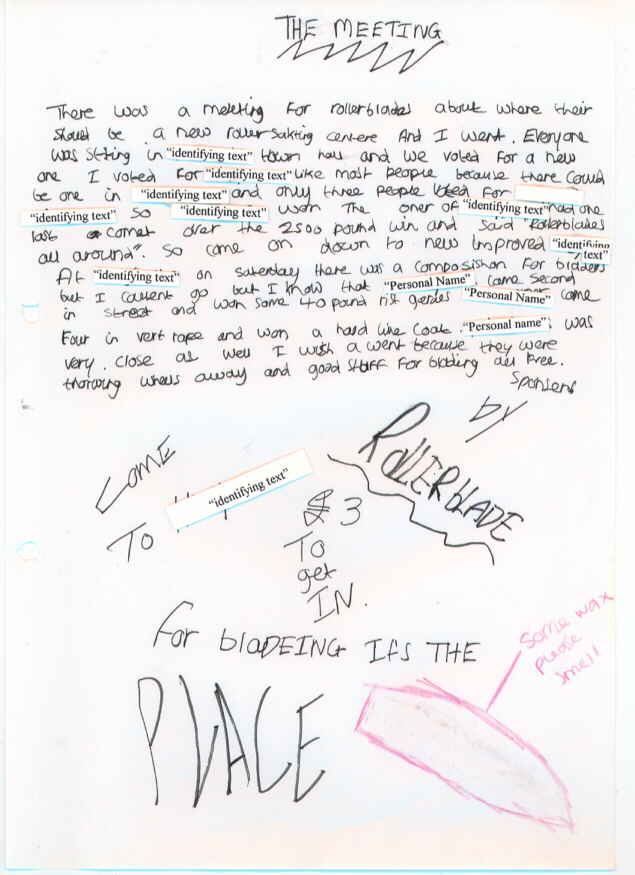 THE MEETING
There was a meeting for rollerblades about where their
should be a new roller sakting centere And I went. Everyone
was sitting in "identifying text" town hall and we voted for a new
one I voted for "identifying text" like most people because there could
be one in "identifying text" and only three people voted for
"identifying text" so "identifying text" won The oner of "identifying text" had one
last comet over the 2500 pound win and said "Rollerblades
all around". So come on down to new Improved "identifying text"
At "identifying text" on saterday there was a composishon For bladers
but I couent go but I know that "Personal Name" came second
in street and won some 40 pound rist gardes "Personal Name" came
Four in vert rape and won a hard line coat. "Personal name" was
very close as well I wish a went because they were
thorwing wheels away and good stuff For blading all free.
Sponsers
by
ROLLERblADE
COME
TO "identifying text"
£3
TO
get
IN.
For blADEING It's THE
PLACE
some wax
please
smell